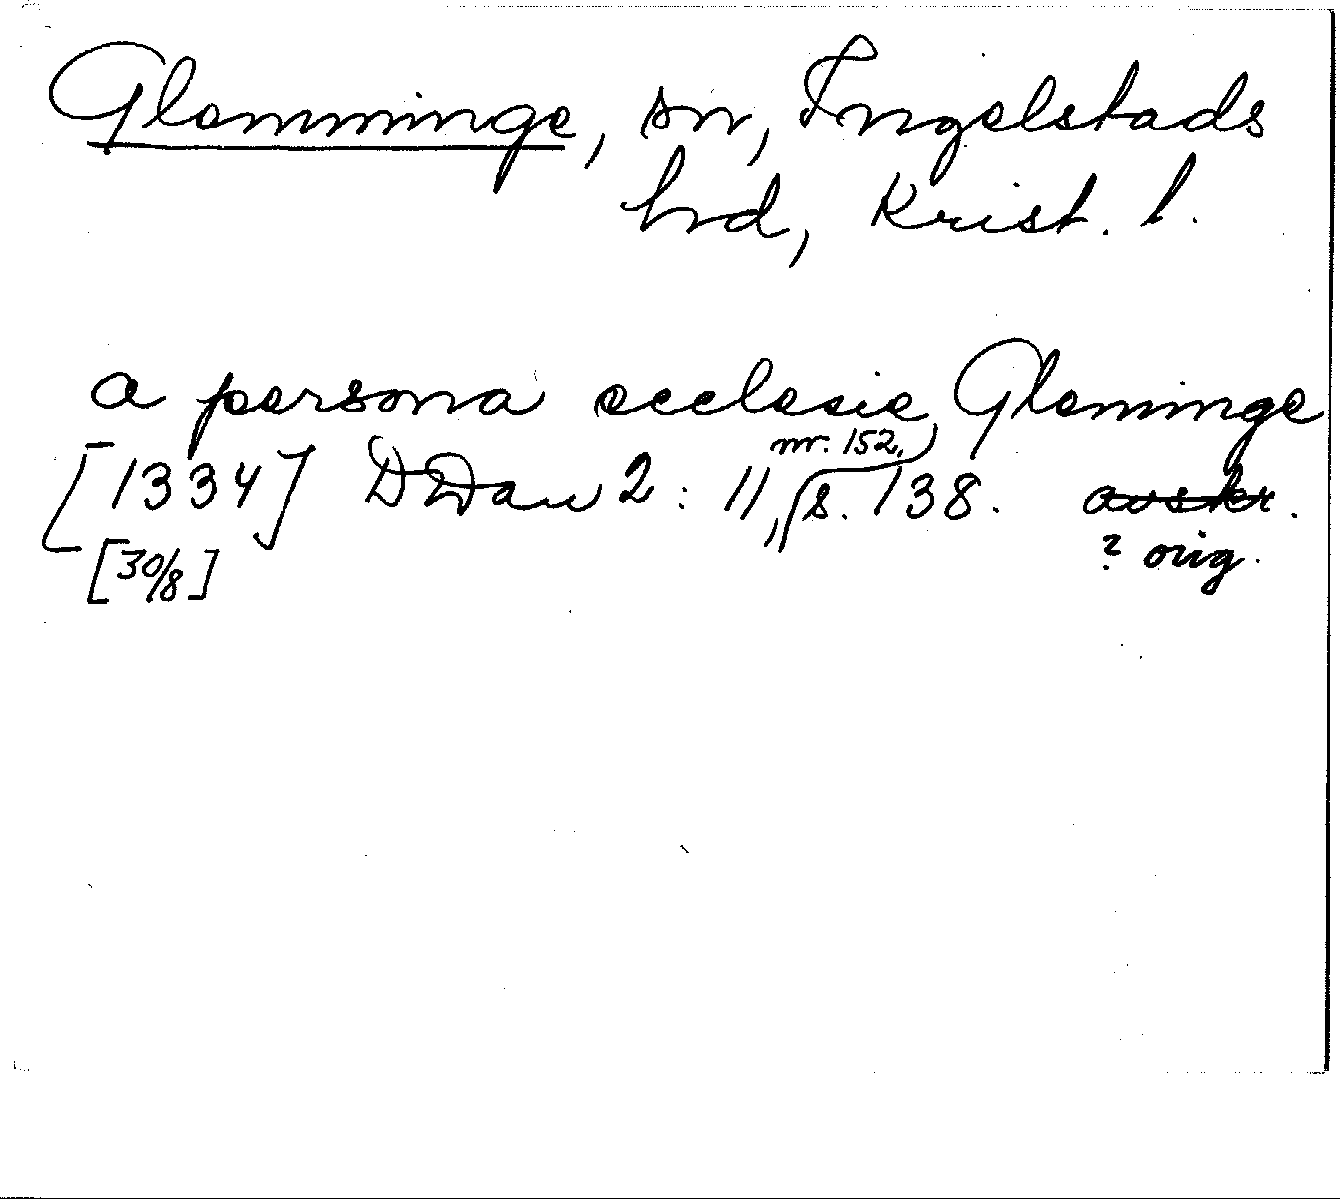 Glemminge, sn, Ingelstads
hrd, Krist. l.
a persona ecclesie Gleminge
nr. 152,
[1334] DDan 2 : 11, s. 138. avskr.
[30/8] ? orig.